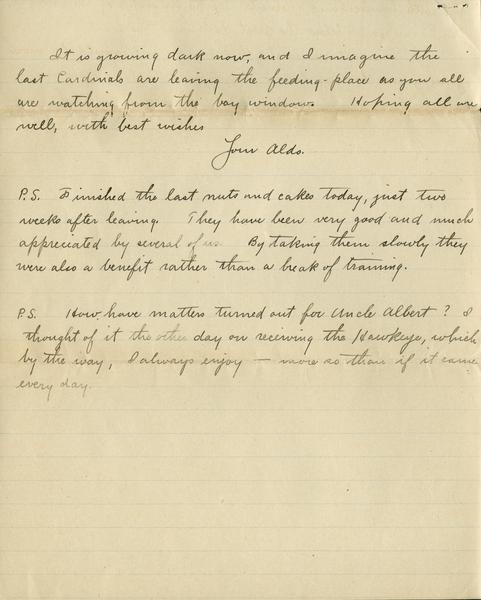 It is growing dark now, and I imagine the
last Cardinals are leaving the feeding-place as you all
are watching from the bay window. Hoping all are
well, with best wishes
Your Aldo.
P.S. Finished the last nuts and cakes today, just two
weeks after leaving. They have been very good and much
appreciated by several of us. By taking them slowly they
were also a benefit rather than a break of training.
P.S. How have matters turned out for Uncle Albert? I
thought of it the other day on receiving the Hawkeye, which
by the way, I always enjoy — more so than if it came
every day.